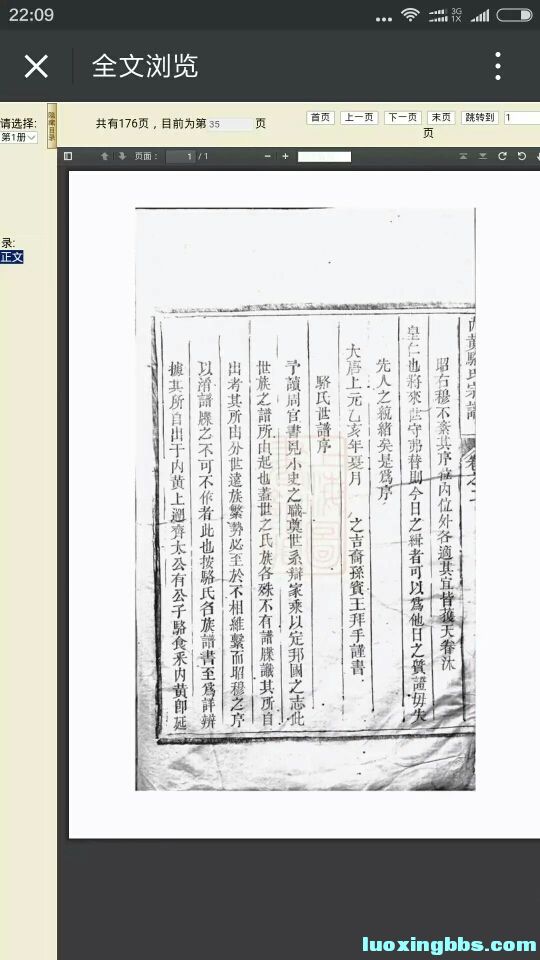 22:09
3G
1X
全文浏览
请选择:
第1册
隐藏目录
共有176页，目前为第 35 页
首页 上一页 下一页 末页 跳转到 1
页
页面： 1 / 1
录:
正文
黄駱氏宗譜
昭右穆不紊其序位內位外各適其宜皆獲天眷沐
皇仁也將來世守弗替則今日之緝者可以為他日之質證毋失
先人之統緒矣是為序
大唐上元乙亥年夏月 之吉裔孫賓王拜手謹書
駱氏世譜序
予讀周官書見小史之職奠世系辯家乘以定邦國之志此
世族之譜所由起也蓋世之氏族各殊不有譜牒識其所自
出者其所出外世遠族繁勢必至於不相維繫而昭穆之序
以淆譜牒之不可不作者此也按駱氏名族譜書至為詳辨
據其所自出于內黄上遡齊太公有公子駱食釆内黄卽延
luoxingbbs.com